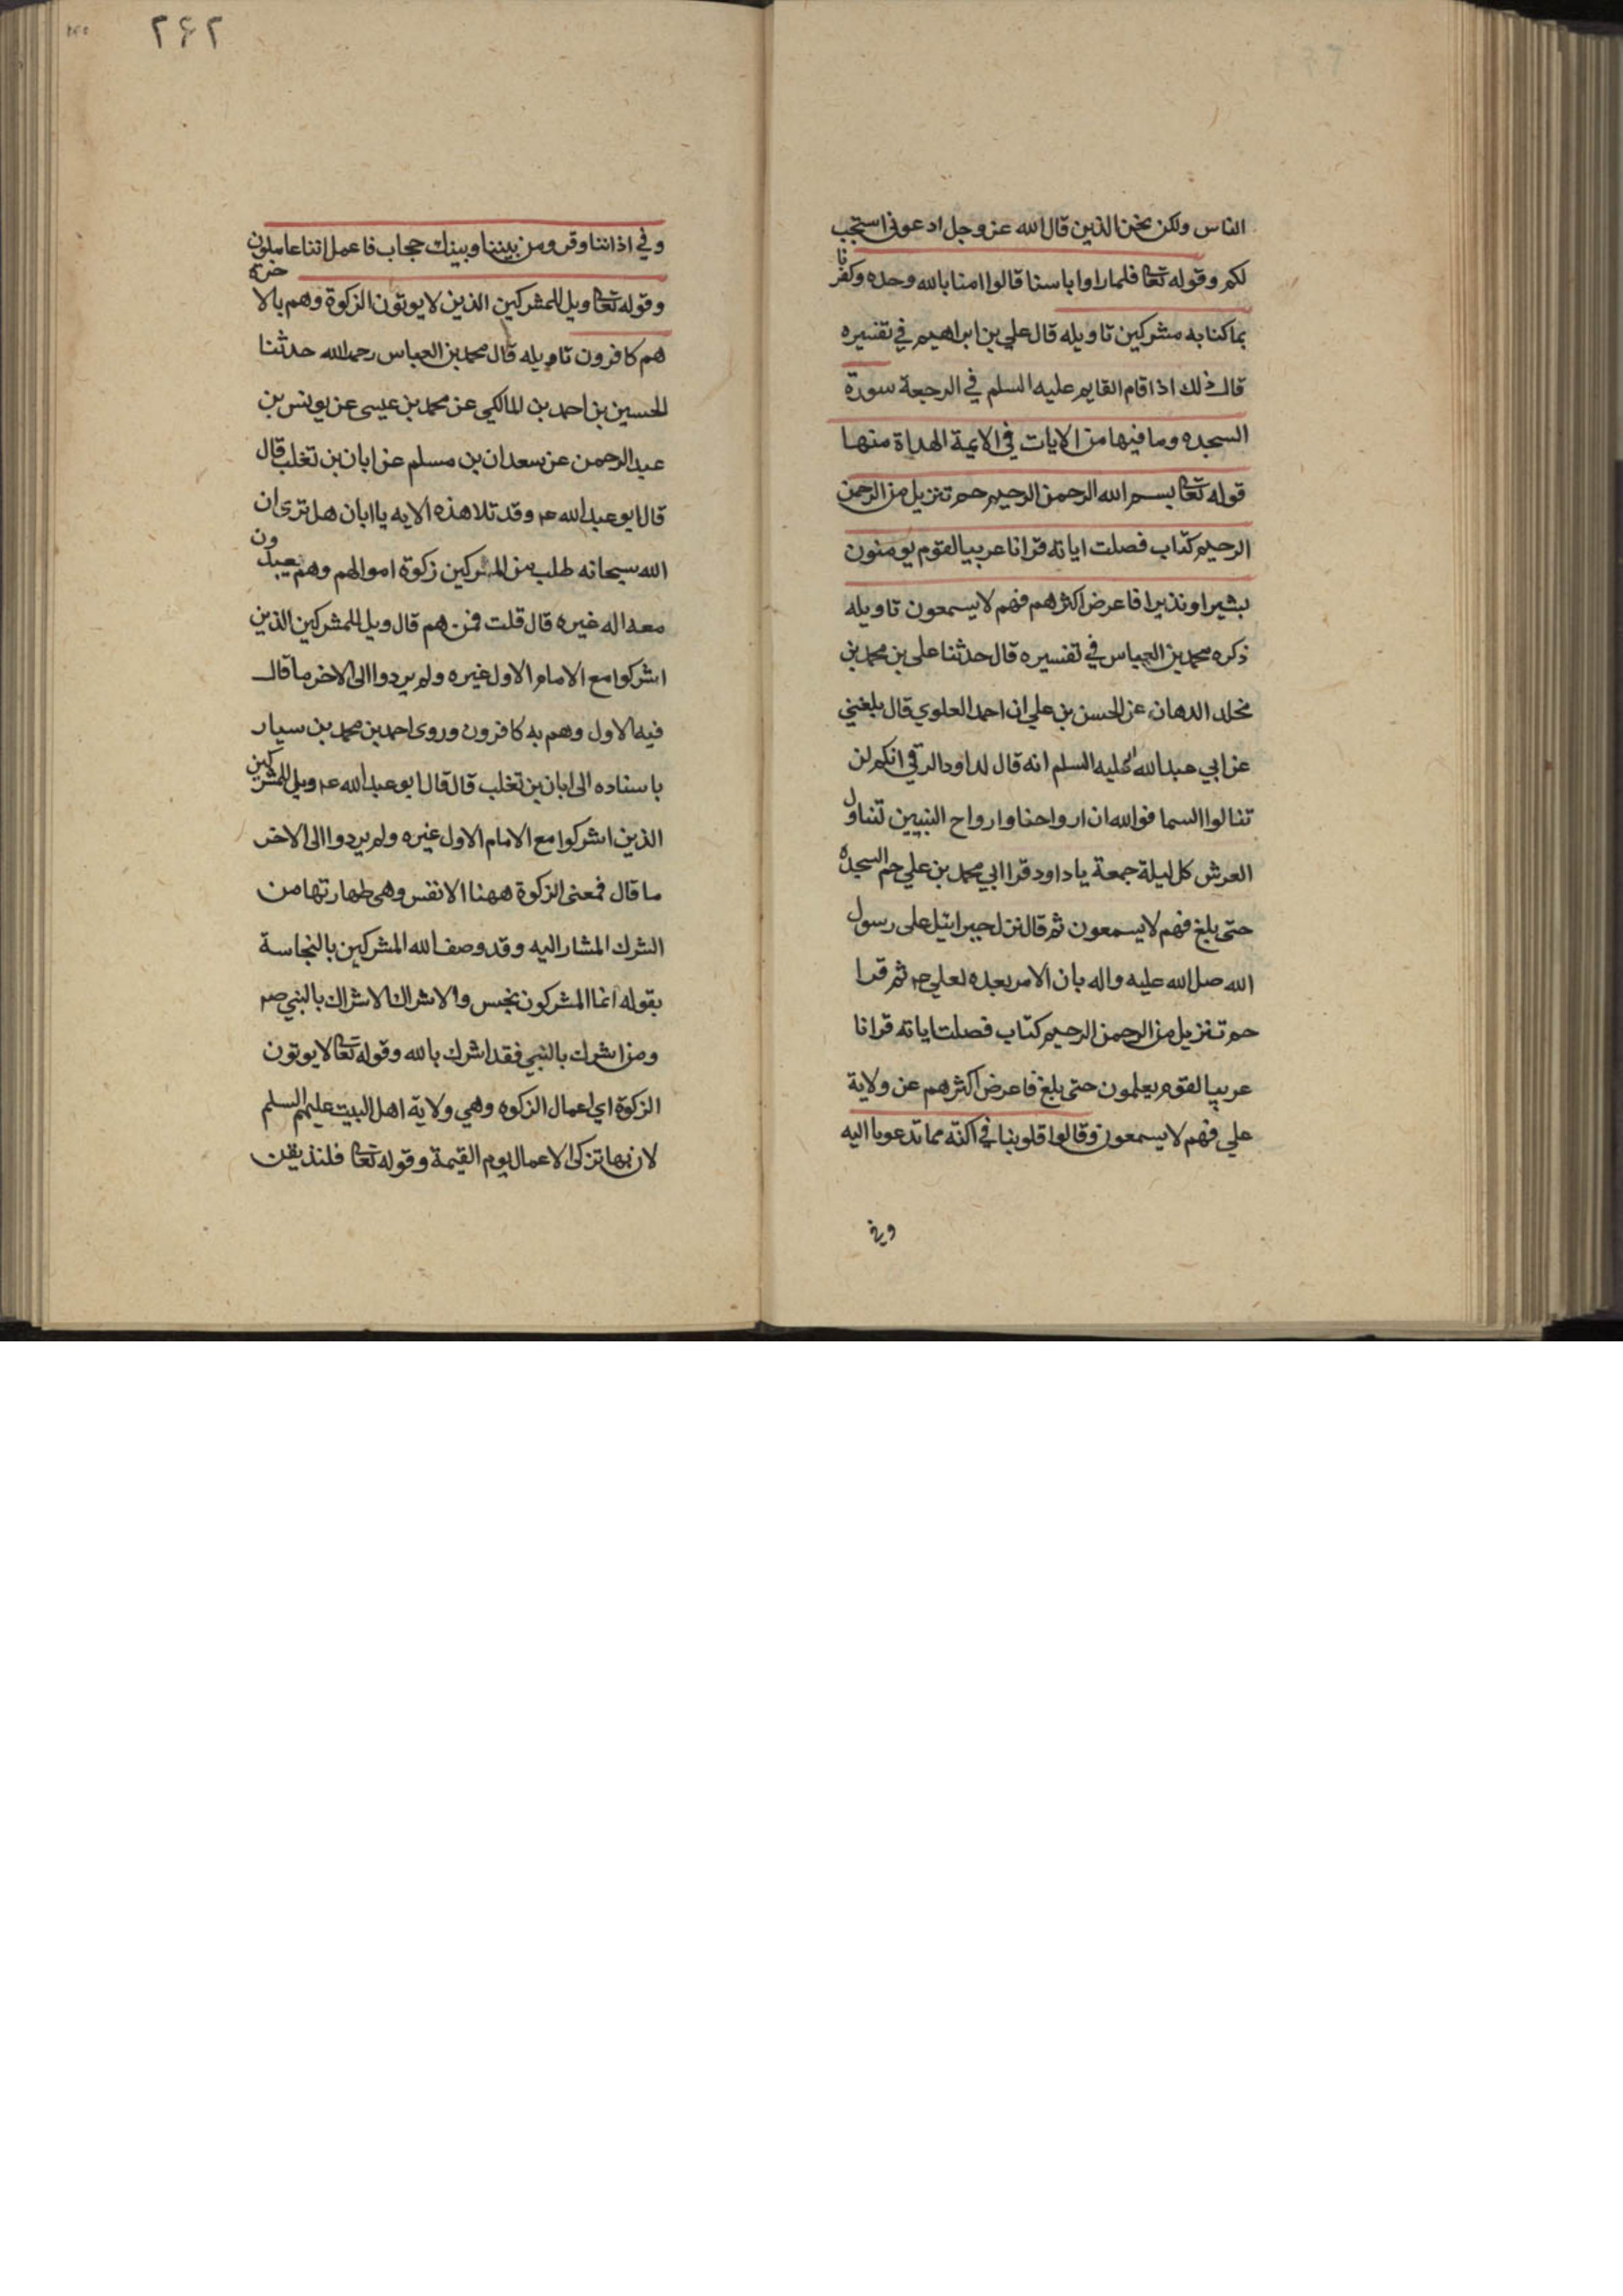 الناس ولكن نحن الذين قال الله عز وجل ادعوني استجب
لكم وقوله تعا فلما راوا باسنا قالوا امنا بالله وحده وكفرنا
بما كنا به مشركين تاويله قال علي بن ابراهيم في تفسيره
قال ذلك اذا قام القايم عليه السلم في الرجعة سورة
السجده وما فيها من الايات في الايمة الهداة منها
قوله تعا بسم الله الرحمن الرحيم حم تنزيل من الرحمن
الرحيم كتاب فصلت اياته قرانا عربيا لقوم يومنون
بشيرا ونذيرا فاعرض اكثرهم فهم لا يسمعون تاويله
ذكره محمد بن العباس في تفسيره قال حدثنا علي بن محمد بن
مخلد الدهان عن الحسن بن علي ان احمد العلوي قال بلغني
عن ابي عبد الله عليه السلم انه قال لداود الرقي انكم لن
تنالوا السما فوالله ان ارواحنا وارواح النبيين تتناول
العرش كل ليلة جمعة يا داود قرا ابي محمد بن علي حم السجده
حتى بلغ فهم لا يسمعون ثم قال نزل جبرائيل على رسول
الله صل الله عليه واله بان الامر بعده لعلي ثم قرا
حم تنزيل من الرحمن الرحيم كتاب فصلت اياته قرانا
عربيا لقوم يعلمون حتى بلغ فاعرض اكثرهم عن ولاية
علي فهم لا يسمعون وقالوا قلوبنا في اكنة مما تدعونا اليه
وفي
٢۶٢
وفي اذاننا وقر ومن بيننا وبينك حجاب فاعمل اننا عاملون
وقوله تعا ويل للمشركين الذين لا يوتون الزكوة وهم بالاخرة
هم كافرون تاويله قال محمد بن العباس رحمه الله حدثنا
الحسين بن احمد بن المالكي عن محمد بن عيسى عن يونس بن
عبد الرحمن عن سعدان بن مسلم عن ابان بن تغلب قال
قال ابو عبد الله ع وقد تلا هذه الايه يا ابان هل ترى ان
الله سبحانه طلب من المشركين زكوة اموالهم وهم يعبدون
معه اله غيره قال قلت فمن هم قال ويل للمشركين الذين
اشركوا مع الامام الاول غيره ولم يردوا الى الاخر ما قال
فيه الاول وهم به كافرون وروى احمد بن محمد بن سيار
باسناده الى ابان بن تغلب قال قال ابو عبد الله ع ويل للمشركين
الذين اشركوا مع الامام الاول غيره ولم يردوا الى الاخر
ما قال فمعنى الزكوة ههنا الانفس وهي طهارتها من
الشرك المشار اليه وقد وصف الله المشركين بالنجاسة
بقوله انما المشركون نجس والاشراك الاشراك بالنبي ص
ومن اشرك بالنبي فقد اشرك بالله وقوله تعا لا يوتون
الزكوة اي اعمال الزكوه وهي ولاية اهل البيت عليهم السلم
لان بها تزكى الاعمال يوم القيمة وقوله تعا فلنذيقن